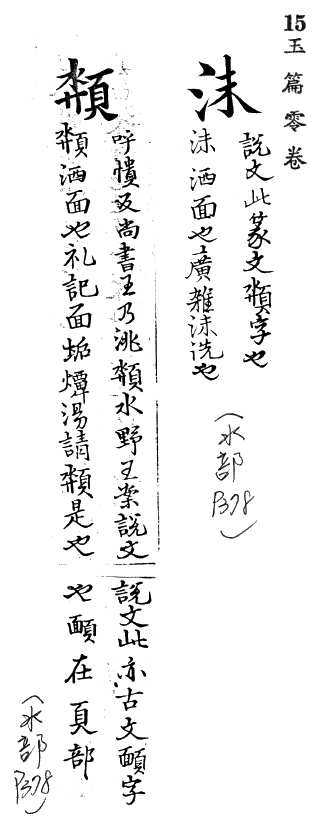 15
玉篇零卷
沬
說文此篆文頮字也
沬洒面也廣雅沬洗也
(水部
P378)
頮
呼憒反尚書王乃洮頮水野王案說文
頮洒面也礼記面垢燂湯請頮是也
說文此亦古文頮字
也頮在頁部
(水部
P378)